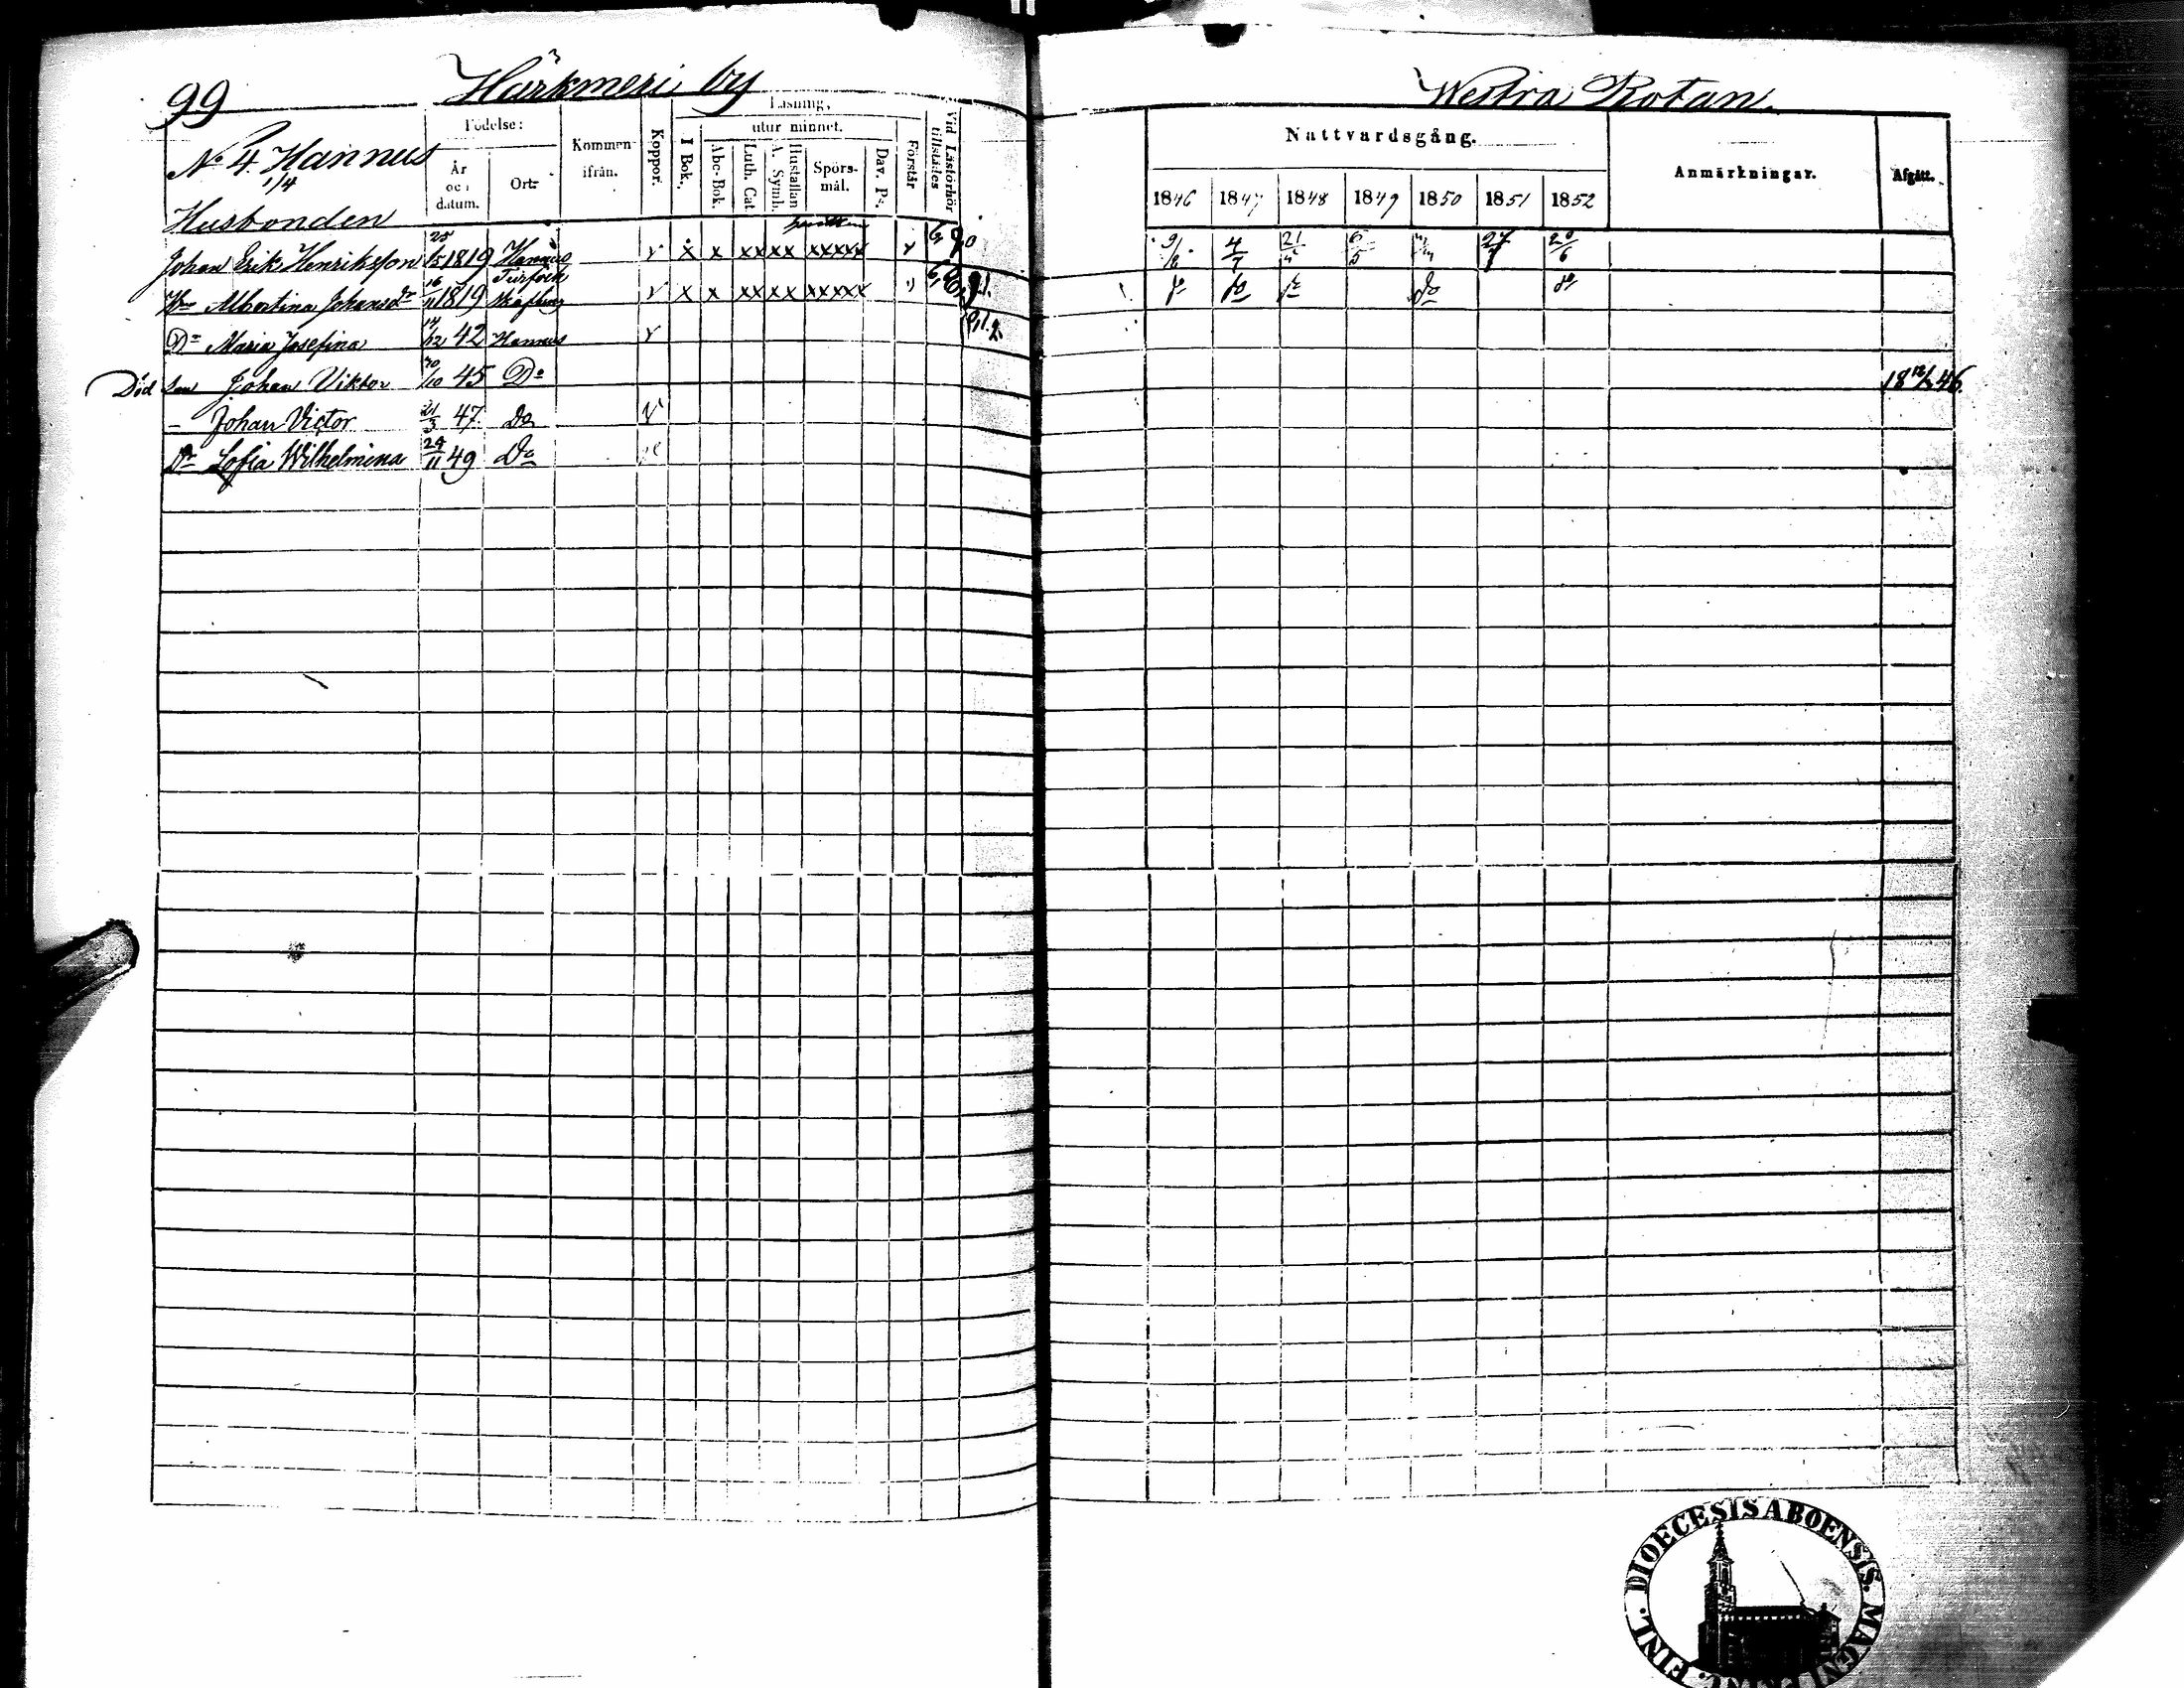 99 Härkmeri by
Westra Rotan.
No 4. Hannus
1/4
Födelse:
År och datum.
Ort:
Kommen ifrån.
Koppor.
Läsning,
I Bok.,
utur minnet.
Abc-Bok.
Luth. Cat.
A. Symb.
Hustaflan
Spörsmål.
Dav. Ps.
Förstår
Vid Läsförhör tillstädes
Nattvardsgång.
1846 1847 1848 1849 1850 1851 1852
Anmärkningar.
Afgått.
Husbonden
Johan Erik Henriksson 25/5 1819 Hannus v x x xx xx xxxxx v 9/6 4/7 21/5 6/5 27/7 20/6
Hu Albertina Johansdr 16/11 1819 Tiusförk v x x xx xx xxxxx do do do do do
Dr Maria Josefina 14/12 42 Hannus v
Död Son Johan Viktor 10/10 45 Do 18 12/3 46.
- Johan Victor 21/3 47. Do v
Dr Sofia Wilhelmina 24/11 49 Do
FINL. DIOECESIS ABOENSIS. MAGNI